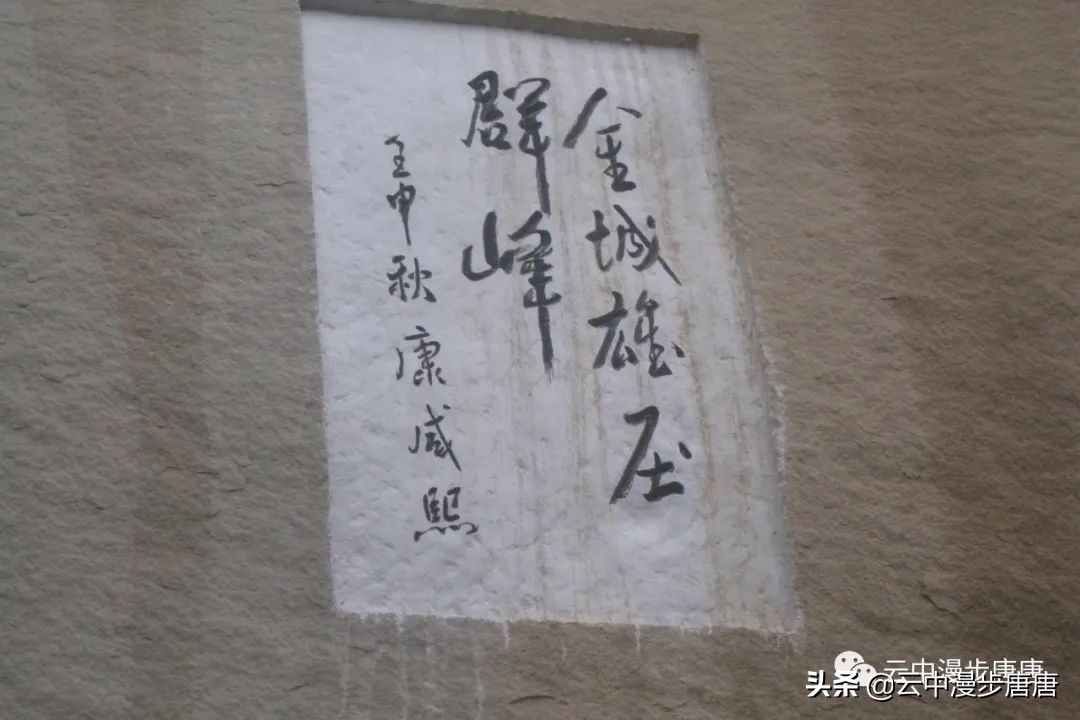 金城雄压
群峰
壬申秋康咸熙
云中漫步唐唐
头条@云中漫步唐唐